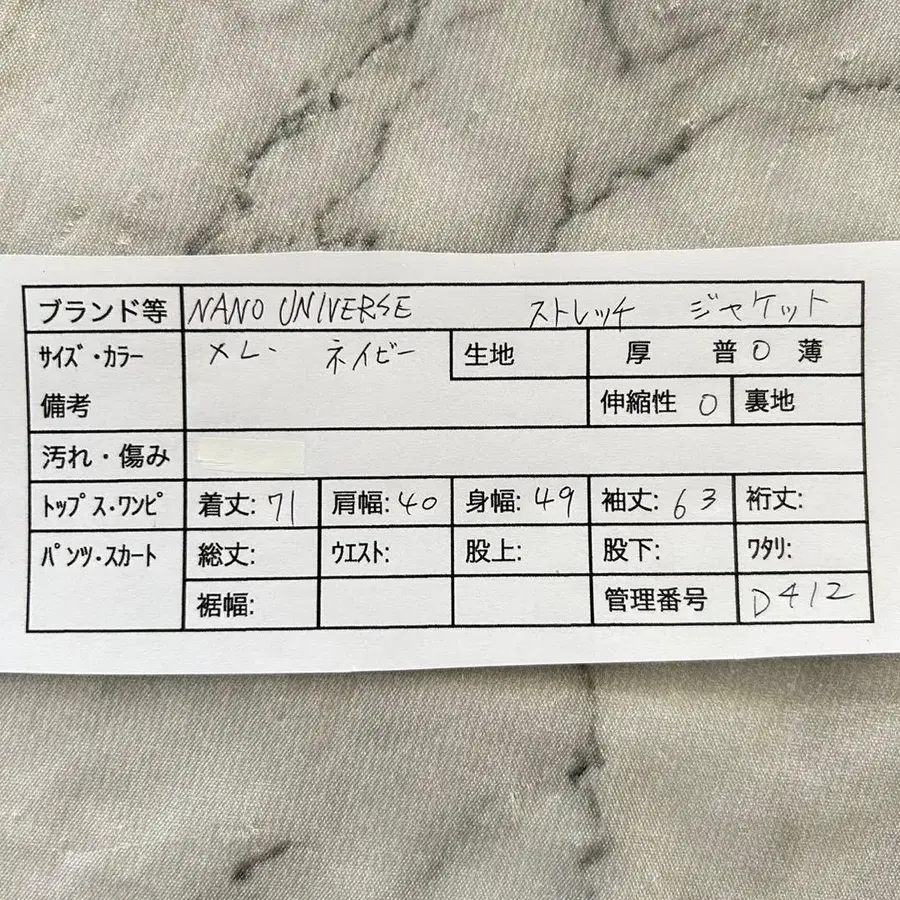 ブランド等 NANO UNIVERSE ストレッチ ジャケット
サイズ・カラー メレ・ ネイビー 生地 厚 普 O 薄
備考 伸縮性 O 裏地
汚れ・傷み
トップス・ワンピ 着丈: 71 肩幅: 40 身幅: 49 袖丈: 63 裄丈:
パンツ・スカート 総丈: ウエスト: 股上: 股下: ワタリ:
裾幅: 管理番号 D412